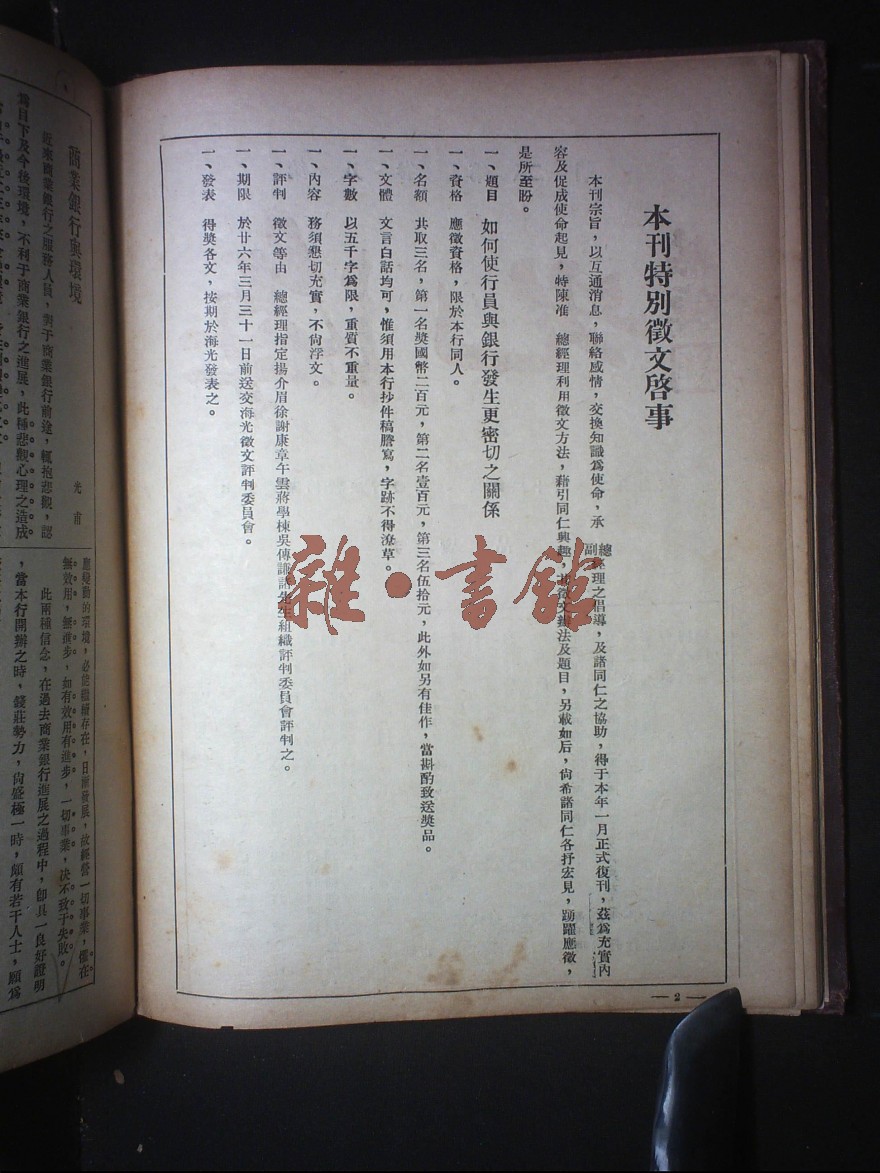 本刊特別徵文啓事
本刊宗旨，以互通消息，聯絡感情，交換知識爲使命，承總副經理之倡導，及諸同仁之協助，得于本年一月正式復刊，茲爲充實內
容及促成使命起見，特陳准　總經理利用徵文方法，藉引同仁興趣，其徵文辦法及題目，另載如后，尙希諸同仁各抒宏見，踴躍應徵，
是所至盼。
一、題目　如何使行員與銀行發生更密切之關係
一、資格　應徵資格，限於本行同人。
一、名額　共取三名，第一名獎國幣二百元，第二名壹百元，第三名伍拾元，此外如另有佳作，當斟酌致送獎品。
一、文體　文言白話均可，惟須用本行抄件稿謄寫，字跡不得潦草。
一、字數　以五千字爲限，重質不重量。
一、內容　務須懇切充實，不尙浮文。
一、評判　徵文等由　總經理指定揚介眉徐謝康章午雲蔣學棟吳傳諸先生組織評判委員會評判之。
一、期限　於廿六年三月三十一日前送交海光徵文評判委員會。
一、發表　得獎各文，按期於海光發表之。
— 2 —
雜·書館
商業銀行與環境
光甫
近來商業銀行之服務人員，對于商業銀行前途，輒抱悲觀，認
爲目下及今後環境，不利于商業銀行之進展，此種悲觀心理之造成
應變動的環境，必能繼續存在，日漸發展，故經營一切事業，僅在
無效用，無進步，如有效用有進步，一切事業，決不致于失敗。
此兩種信念，在過去商業銀行進展之過程中，卽具一良好證明
，當本行開辦之時，錢莊勢力，尙盛極一時，頗有若干人士，願爲